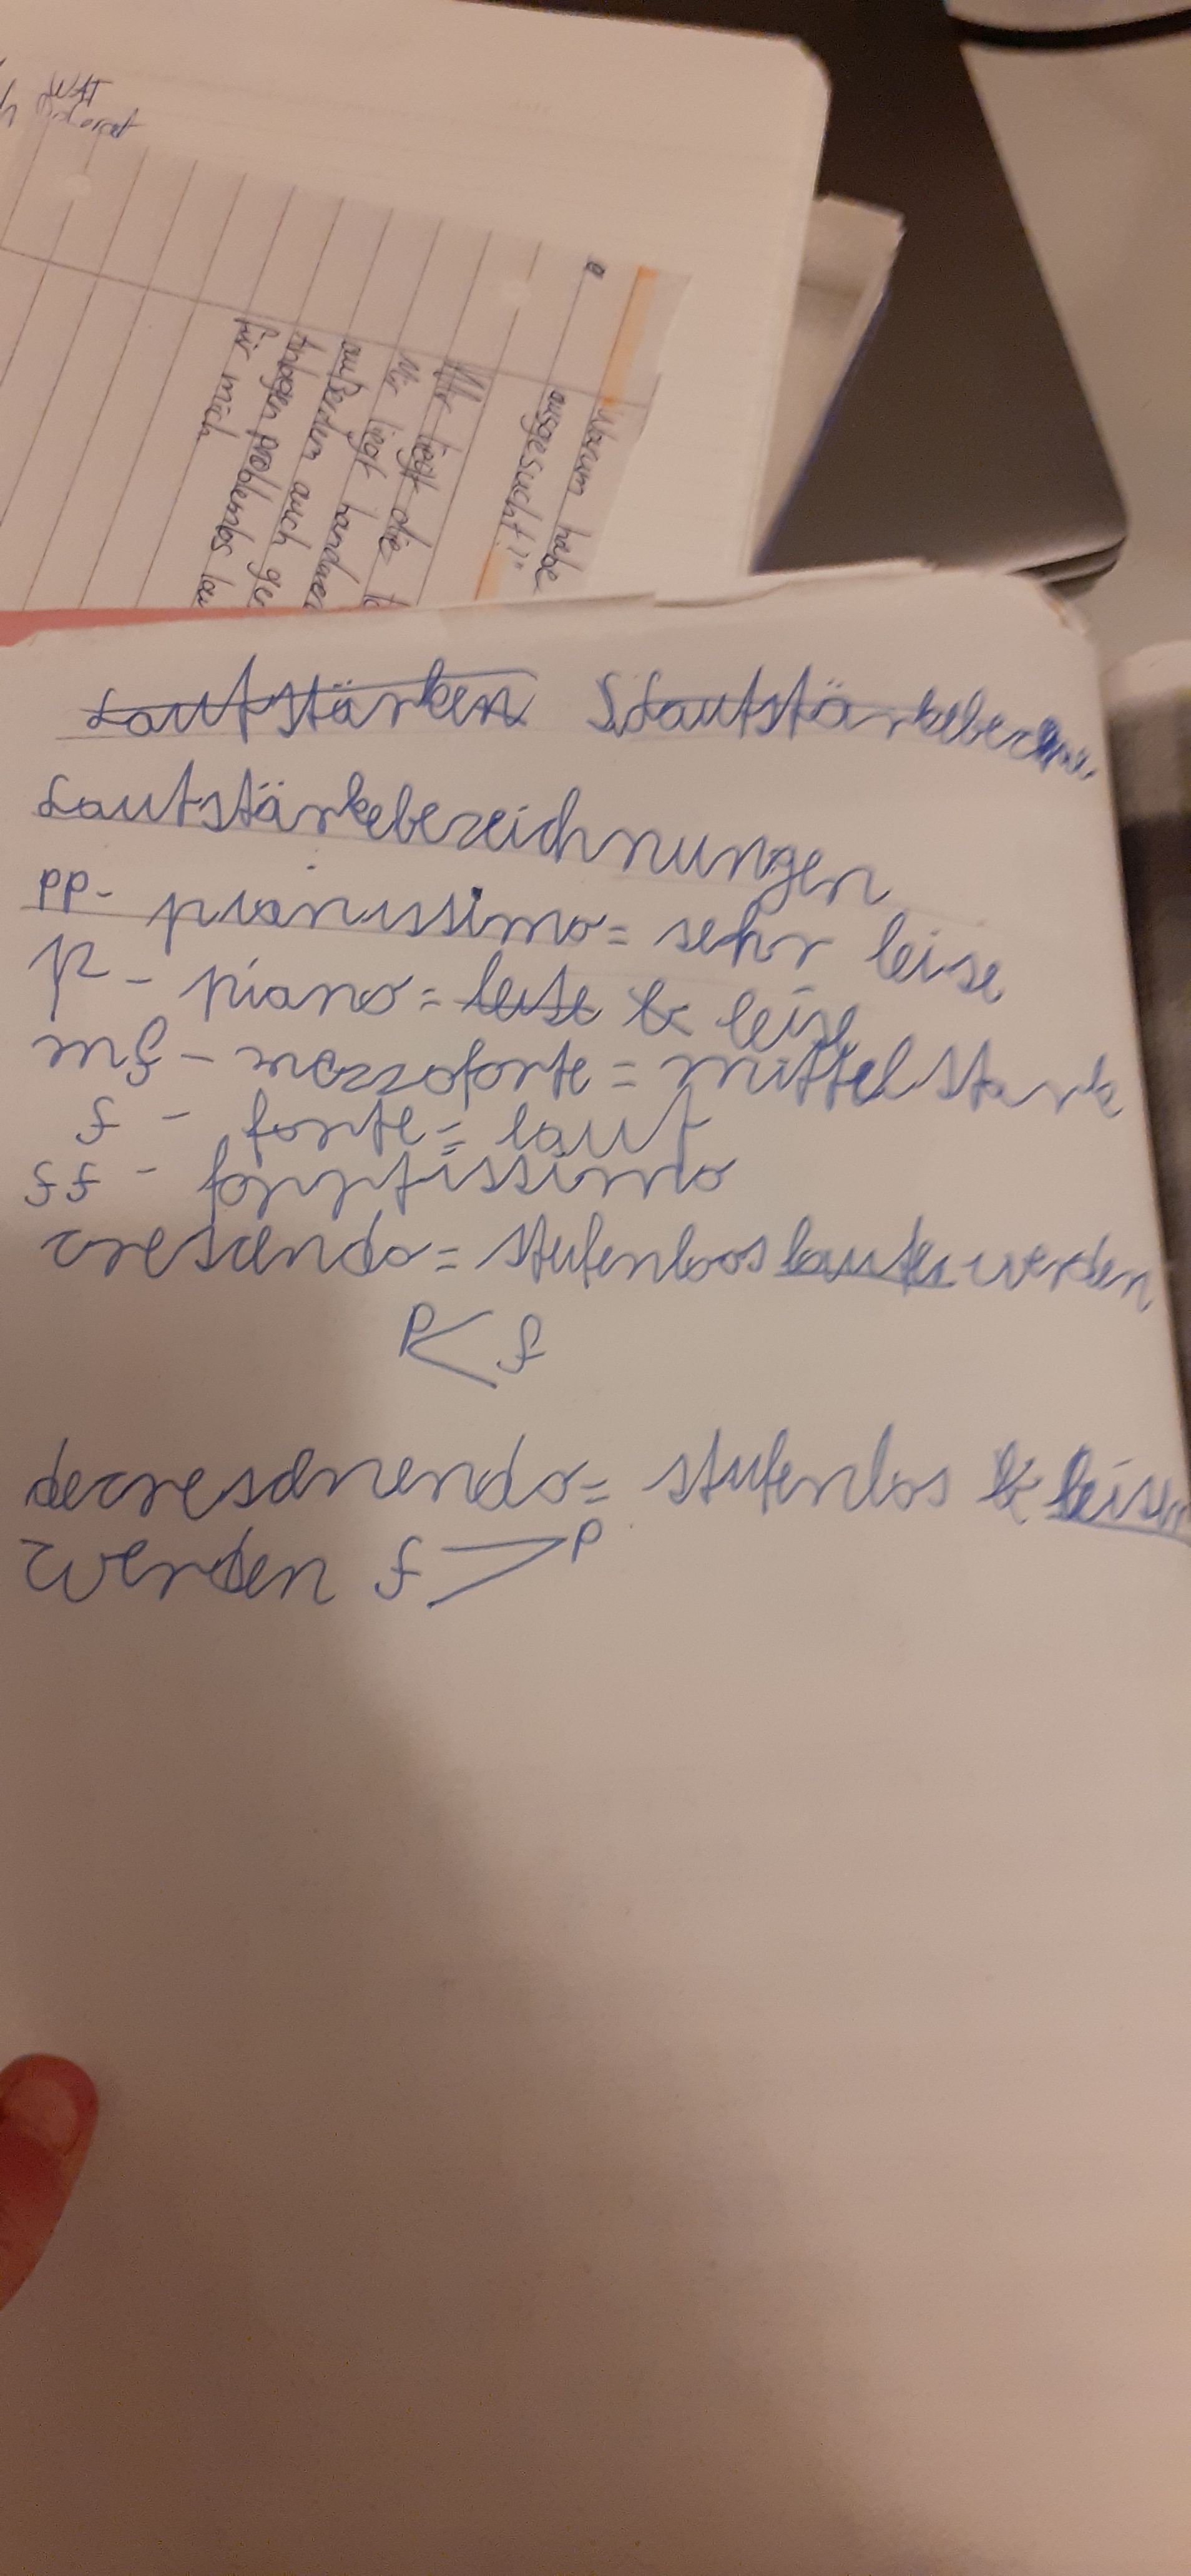 WAT
Warum habe
ausgesucht?"
Mir liegt die
Mir liegt handwer
außerdem auch ge
problemlos
für mich
Lautstärken Lautstärkebe
Lautstärkebezeichnungen
pp- pianissimo = sehr leise
p - piano = leise leise
mf - mezzoforte = mittel stark
f - forte = laut
ff - forrtissimo
crescendo = stufenloos lauter werden
p < f
decreschendo = stufenlos leiser
werden f > p